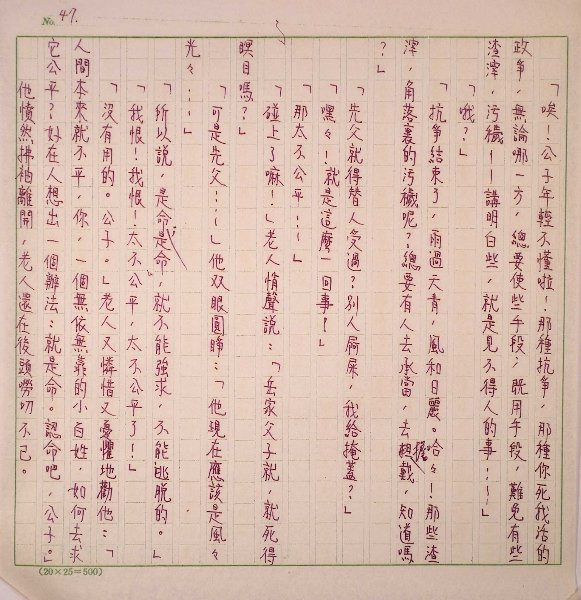 No. 47.
「唉！公子年輕不懂啦，那種抗爭，那種你死我活的
政爭，無論哪一方，總要使些手段；既用手段，難免有些
渣滓，污穢——講明白些，就是見不得人的事……」
「哦？」
「抗爭結束了，雨過天青，風和日麗。哈々！那些渣
滓，角落裏的污穢呢？總要有人去承當，去擔戴，知道嗎
？」
「先父就得替人受過？別人屙屎，我給掩蓋？」
「嘿々！就是這麼一回事！」
「那太不公平……」
「碰上了嘛！」老人悄聲說：「岳家父子就，就死得
瞑目嗎？」
「可是先父……」他双眼圓睜：「他現在應該是風々
光々……」
「所以說，是命是命，就不能強求，不能逃脫的。」
「我恨！我恨！太不公平，太不公平了！」
「沒有用的。公子。」老人又憐惜又憂懼地勸他：「
人間本來就不平，你，一個無依無靠的小百姓，如何去求
它公平？好在人想出一個辦法：就是命。認命吧，公子。」
他憤然拂袖離開，老人還在後頭嘮叨不已。
(20×25=500)